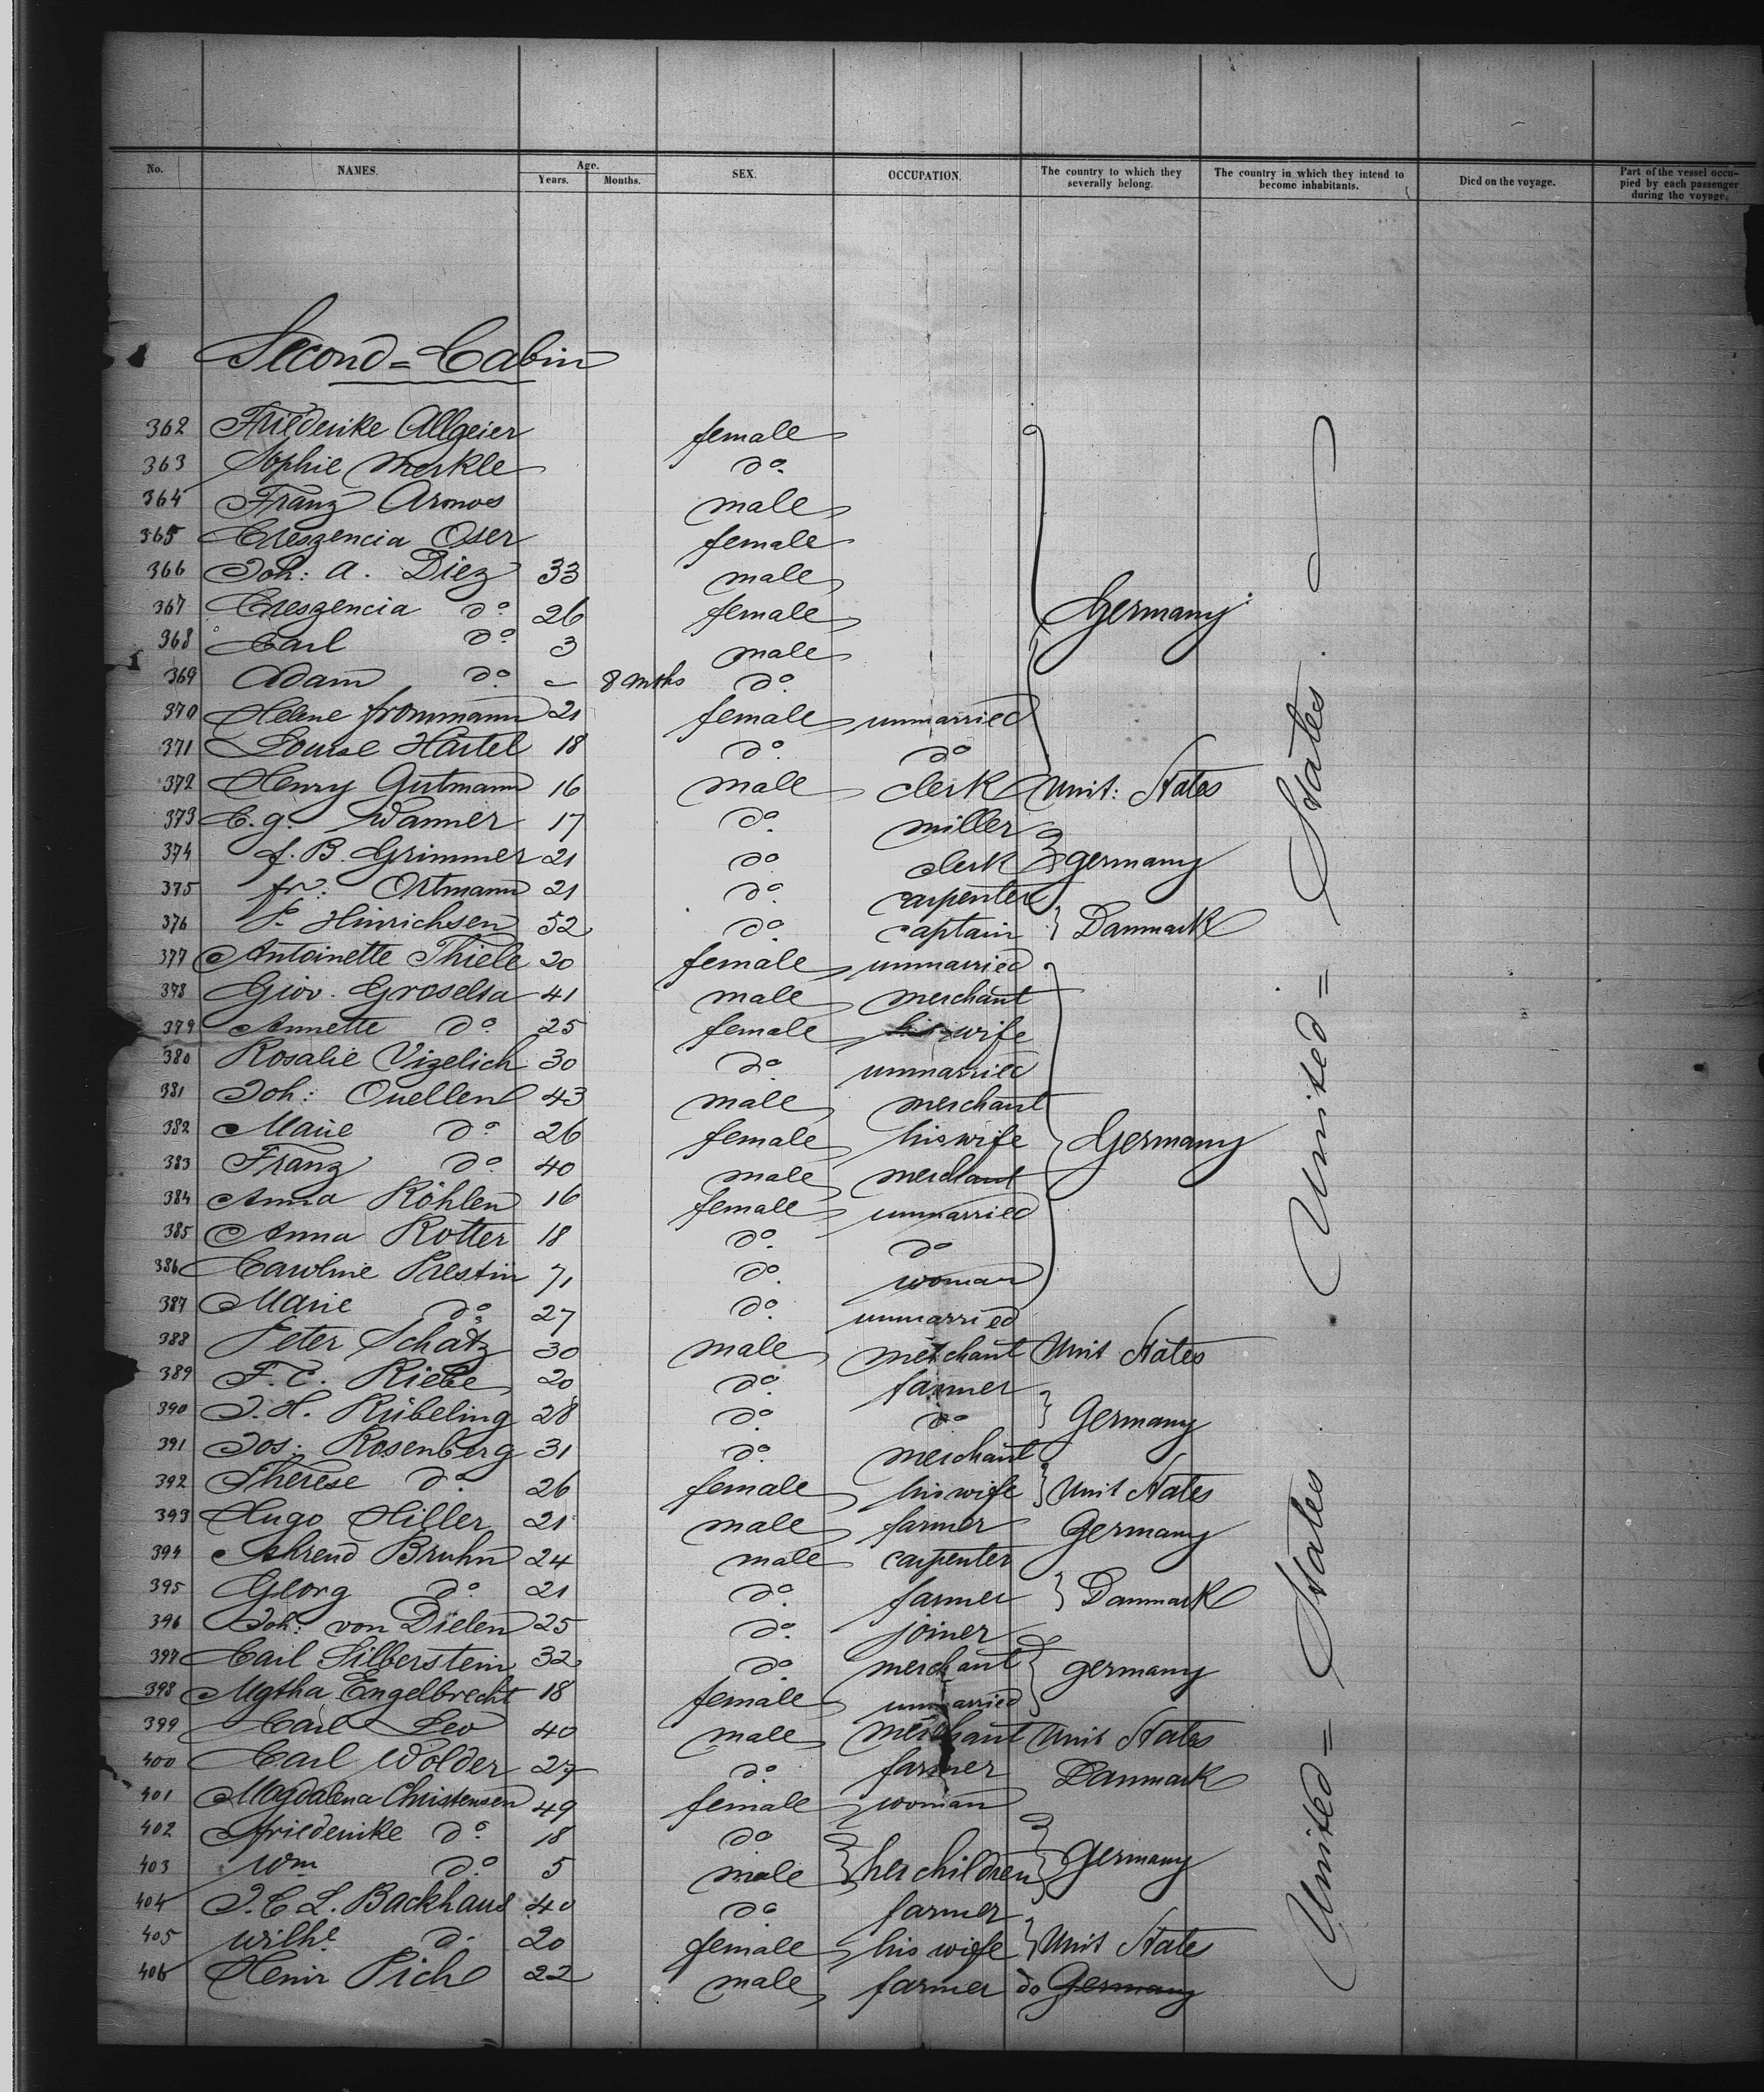 No. NAMES. Age. Years. Months. SEX. OCCUPATION. The country to which they severally belong. The country in which they intend to become inhabitants. Died on the voyage. Part of the vessel occupied by each passenger during the voyage.
Second=Cabin
362 Friederike Allgeier female
363 Sophie Merkle do.
364 Franz male
365 Creszencia Oser female
366 Joh: A. Diez 33 male
367 Creszencia do 26 female Germany
368 Carl do 3 male
369 Adam do. – 8 mths do.
370 Helene Frommann 21 female unmarried
371 Louise Härtel 18 do. do
372 Henry Gutmann 16 male clerk Unit: States
373 C. G. Wanner 17 do. miller
374 F. B. Grimmer 21 do. clerk Germany
375 Fr: Ortmann 21 do. carpenter
376 P. Hinrichsen 52 do. captain Danmark
377 Antoinette Thiele 20 female unmarried
378 Giov. Groselsa 41 male merchant
379 Annette do. 25 female his wife
380 Rosalie Vizelich 30 do. unmarried
381 Joh: Ouellen 43 male merchant
382 Marie do. 26 female his wife Germany
383 Franz do. 40 male merchant
384 Anna Köhlen 16 female unmarried
385 Anna Rotter 18 do. do
386 Caroline Prestin 71 do. woman
387 Marie do. 27 do. unmarried
388 Peter Schatz 30 male merchant Unit States
389 F. C. Riebe 20 do. farmer
390 J. H. Rübeling 28 do. do Germany
391 Jos: Rosenberg 31 do. merchant
392 Therese do. 26 female his wife Unit States
393 Hugo Hiller 21 male farmer Germany
394 Ahrend Bruhn 24 male carpenter
395 Georg do. 21 do. farmer Danmark
396 Joh: von Dielen 25 do. joiner
397 Carl Silberstein 32 do. merchant Germany
398 Mgtha Engelbrecht 18 female unmarried
399 Carl Leo 40 male merchant Unit States
400 Carl Wolder 27 do. farmer Danmark
401 Magdalena Christensen 49 female woman
402 Friederike do. 18 do
403 Wm do. 5 male her children Germany
404 J. C. L. Backhaus 40 do. farmer
405 Wilhe do. 20 female his wife Unit State
406 Henir Pich 22 male farmer do Germany
United = States
United = States